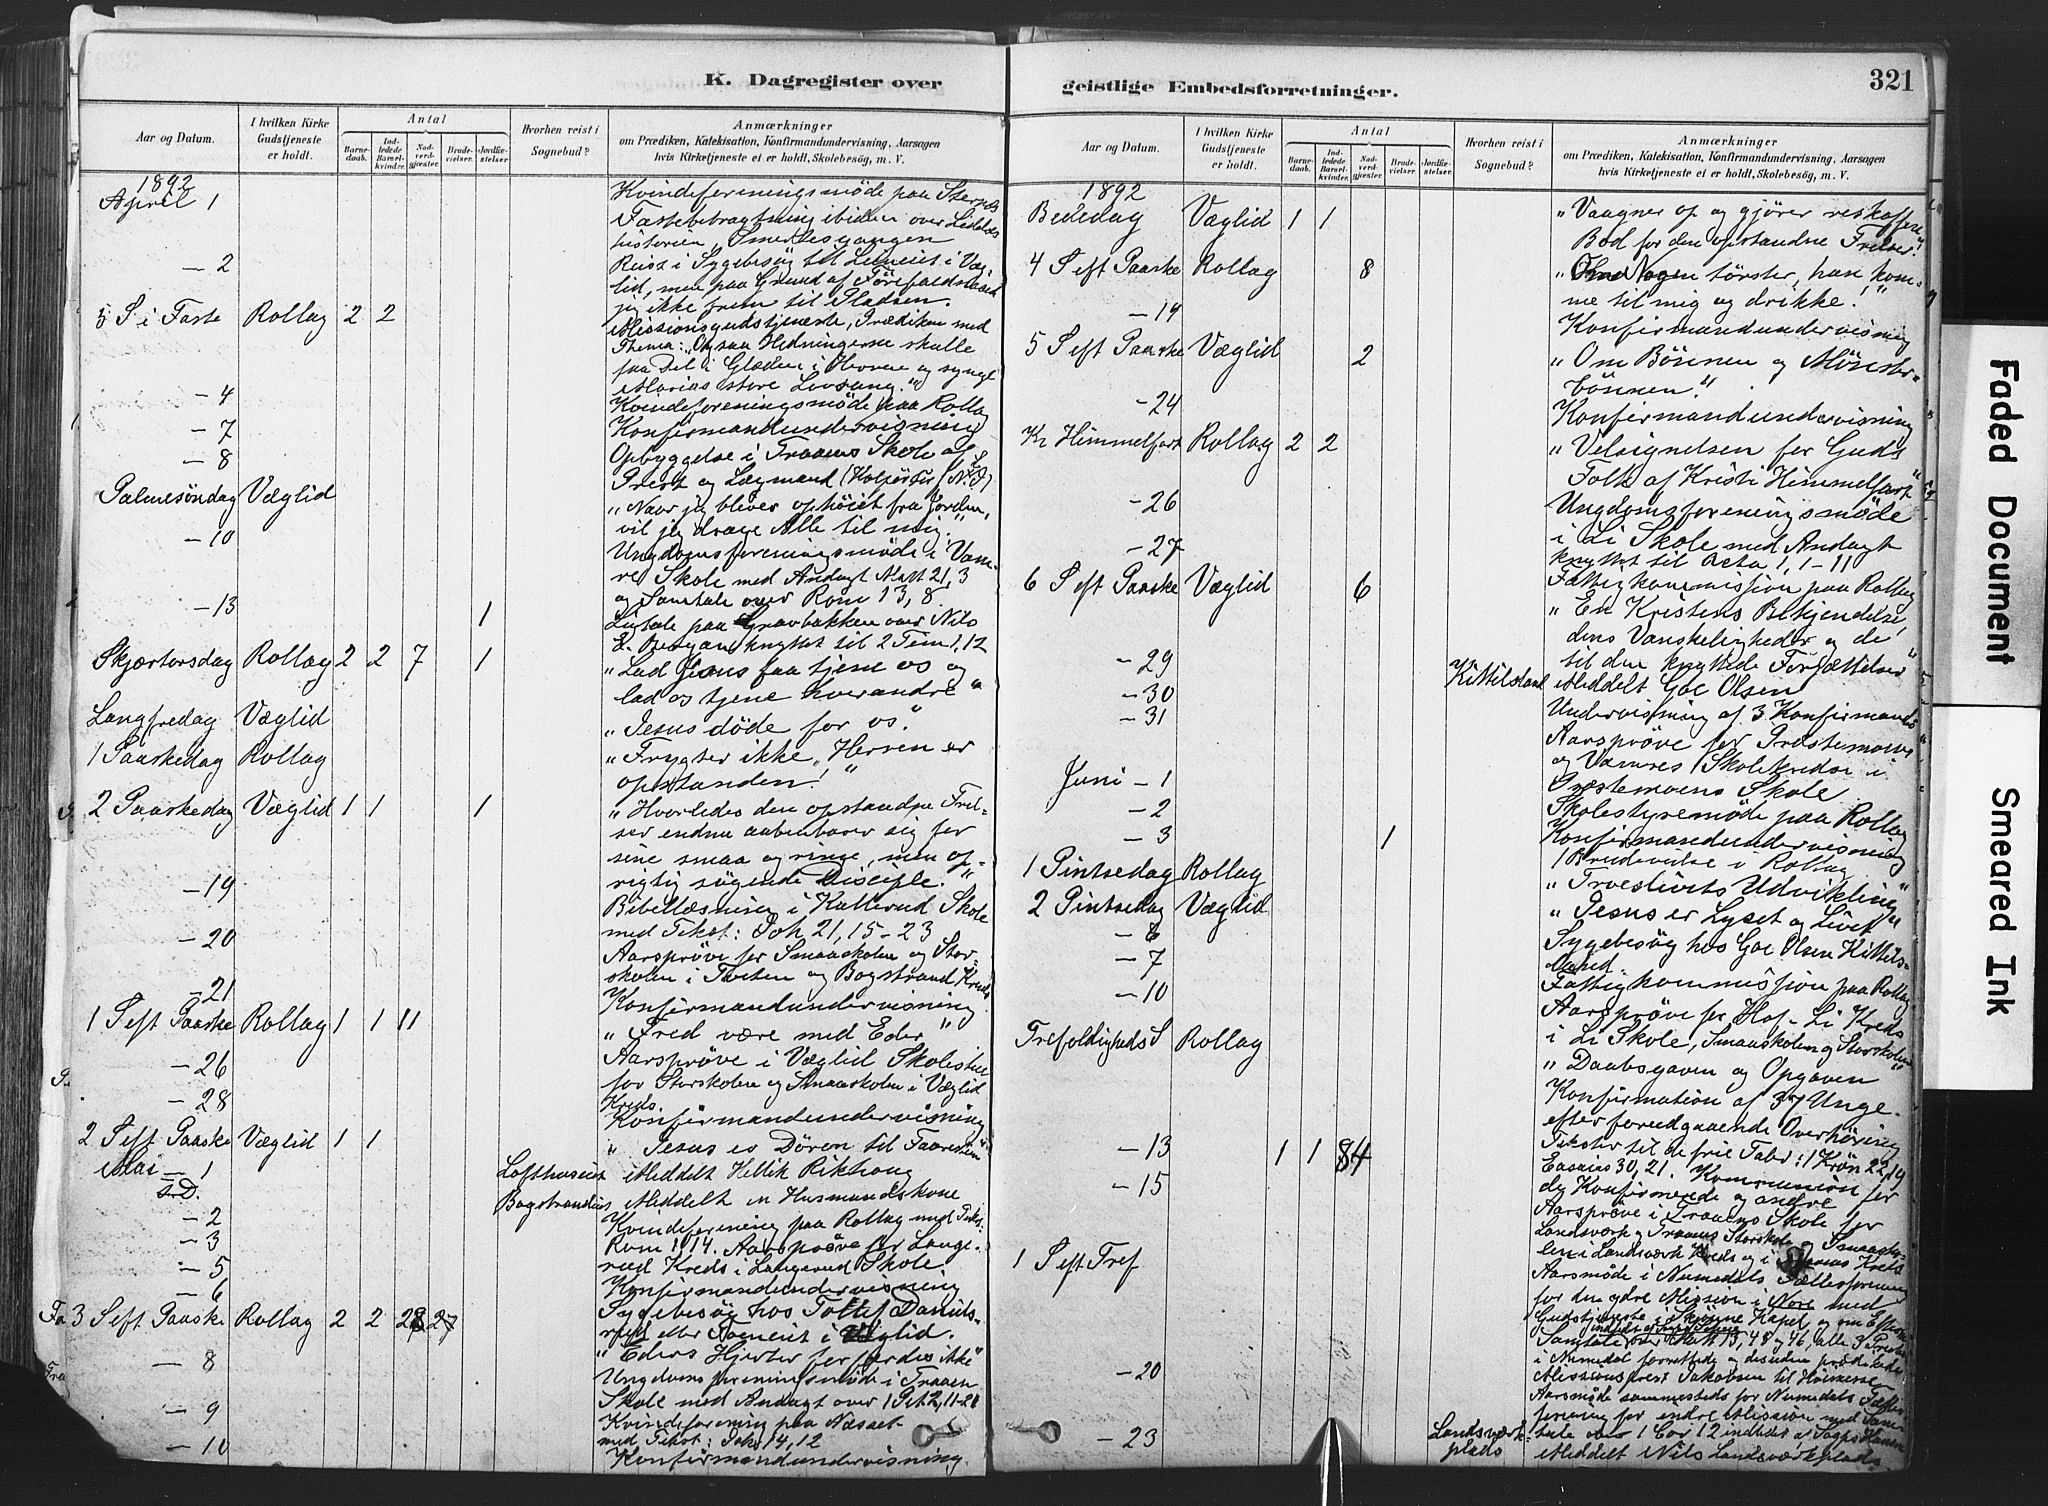 K. Dagregister over
Aar og Datum.
I hvilken Kirke Gudstjeneste er holdt.
Antal
Barne-daab.
Ind-ledede Barsel-kvinder.
Nad-verd-gjester.
Brude-vielser.
Jordfæ-stelser
Hvorhen reist i Sognebud?
Anmærkninger
om Prædiken, Katekisation, Konfirmandundervisning, Aarsagen
hvis Kirketjeneste ei er holdt, Skolebesøg, m. V.
1892
April 1
Kvindeforeningsmøde paa
Fastebetragtning ibiden over Lidelses
historien "Smertesgangen
- 2
Reist i Sygebesøg til
lid, men paa Grund af
jeg ikke frem til Pladsen.
5 S i Faste Rollag 2 2
Missionsgudstjeneste, Prædiken med
Thema: "Ogsaa Hedningerne skulle
faa Del i Glæden i Herren og synge
Marias store Lovsang."
- 4
Kvindeforeningsmøde paa Rollag
- 7
Konfirmandundervisning
- 8
Opbyggelse i Traaens Skole af
Prest og Lægmand
Palmesøndag Væglid
"Naar jeg bliver ophøiet fra Jorden,
vil jeg drage Alle til mig."
- 10
Ungdomsforeningsmøde i Vam-
re Skole med Andagt Matt 21, 3
og Samtale over Rom 13, 8
- 13 1
Ligtale paa Gravbakken over Nils
E. Bergan knyttet til 2 Tim 1,12
Skjærtorsdag Rollag 2 2 7 1
"Lad Jesus faa tjene os og
lad os tjene hverandre"
Langfredag Væglid
"Jesus døde for os".
1 Paaskedag Rollag
"Frygter ikke, Herren er
opstanden!"
2 Paaskedag Væglid 1 1 1
"Hvorledes den opstandne Frel-
ser endnu aabenbarer sig for
sine smaa og ringe, men op-
rigtig søgende Disciple."
- 19
Bibellæsning i Kallerud Skole
med Tekst: Joh 21, 15-23
- 20
Aarsprøve for Smaaskolen og Stor-
skolen i Tveiten og Bogstrand Kreds
- 21
Konfirmandundervisning
1 S eft Paaske Rollag 1 1 11
"Fred være med Eder"
- 26
Aarsprøve i Væglid Skolestue
for Storskolen og Smaaskolen i Væglid
Kreds.
- 28
Konfirmandundervisning
2 S eft Paaske Væglid 1 1
"Jesus er Døren til Faarestien"
Mai - 1
Meddelt
s.D.
Meddelt en Husmandskone
- 2
Kvindeforening paa Rollag med Tekst
- 3
Rom 1,14. Aarsprøve for Lange-
rud Kreds i Langerud Skole
- 5
Konfirmandundervisning
- 6
Sygebesøg hos Tollef Daniels-
i Væglid.
3 S eft Paaske Rollag 2 2 28 27
"Eders Hjerter forfærdes ikke"
- 8
Ungdomsforeningsmøde i Traaen
Skole med Andagt over 1 Pet 2, 11-21
- 9
Kvindeforening paa Næsset
med Tekst: Joh 14,12
- 10
Konfirmandundervisning.
geistlige Embedsforretninger.
321
Aar og Datum.
I hvilken Kirke Gudstjeneste er holdt.
Antal
Barne-daab.
Ind-ledede Barsel-kvinder.
Nad-verd-gjester.
Brude-vielser.
Jordfæ-stelser.
Hvorhen reist i Sognebud?
Anmærkninger
om Prædiken, Katekisation, Konfirmandundervisning, Aarsagen
hvis Kirketjeneste ei er holdt, Skolebesøg, m. V.
1892
Bededag Væglid 1 1
"Vaagner op og gjører reskaffene
Bod for den opstandne Frelser."
4 S eft Paaske Rollag 8
"Om Nogen tørster, han kom-
me til mig og drikke!"
- 19
Konfirmandundervisning
5 S eft Paaske Væglid 2
"Om Bønnen og Mønster-
bønnen."
- 24
Konfirmandundervisning
Kr Himmelfart Rollag 2 2
"Velsignelsen for Guds
Folk af Kristi Himmelfart"
- 26
Ungdomsforeningsmøde
i Li Skole med Andagt
knyttet til Acta 1, 1-11
- 27
Fattigkommission paa Rollag
6 S eft Paaske Væglid 6
"En Kristens Bekjendelse,
dens Vanskeligheder og de
til den knyttede Forjættelser"
- 29 Kittilsland
Meddelt Goe Olsen
- 30
Undervisning af 3 Konfirmander
- 31
Aarsprøve for Prestemoen
og Vamres Skolekredse i
Prestemoens Skole
Juni - 1
Skolestyremøde paa Rollag
- 2
Konfirmandundervisning
- 3 1
1 Brudevielse i Rollag
1 Pintsedag Rollag
"Troeslivets Udvikling"
2 Pintsedag Væglid
"Jesus er Lyset og Livet"
- 6
Sygebesøg hos Goe Olsen Kittils-
land.
- 7
Fattigkommission paa Rollag
- 10
Aarsprøve for Hof-Li Kreds
i Li Skole, Smaaskolen og Storskolen
Trefoldigheds S Rollag
"Daabsgaven og Opgaven"
Konfirmation af 37 Unge
efter forudgaaende Overhøring
Tekster til de frie Taler: 1 Krøn 22,19
- 13 1 1 84
Esaias 30, 21. Kommunion for
de Konfirmerede og andre
- 15
Aarsprøve i Traaens Skole for
Landsværk og Traaens Storskole og Smaasko-
len i Landsværk Kreds og i Traaens Kreds
1 S eft Tref
Aarsmøde i Numedals Fællesforening
for den ydre Mission i Nore med
Gudstjeneste i Skjønne Kapel og om Efterm
Samtale over Matt 13, 48 og 46, alle 3 Prester
i Numedal forrettede og desuden prædikede
Missionsprest Jakobsen til Høimesse
- 20
Aarsmøde sammesteds for Numedals Fælles
forening for indre Mission med Sam-
tale over 1 Cor 12 indledet af Sogpr Hansen
- 23 Landsværk-
plads
Meddelt Nils Landsværkplads
Faded Document
Smeared Ink